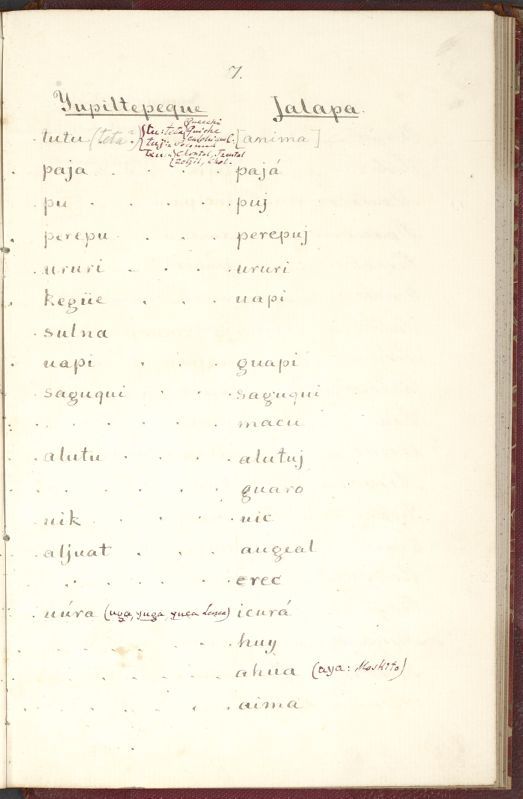 7.
Yupiltepeque Jalapa.
tutu (teta [anima]
paja . . . . pajá
pu . . . . puj
perepu . . . perepuj
ururi . . . ururi
kegüe . . . uapi
sulna
uapi . . . guapi
saguqui . . . saguqui
. . . . . macu
alutu . . . alutuj
. . . . . guaro
nik . . . . nic
aljuat . . . augeal
. . . . erec
uúra (uga, yuga, yuca Lenca) icurá
. . . . . huy
. . . . . ahua (aya: Moskito)
. . . . . aima